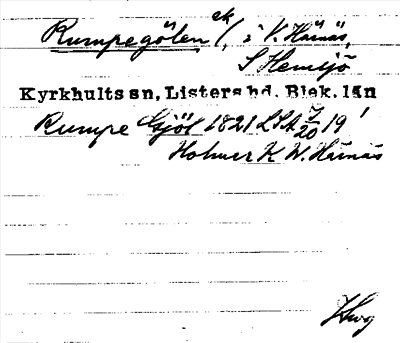 Rumpegölen ek, i V. Härnäs,
S Hemsjö
Kyrkhults sn, Listers hd. Blek. län
Rumpe Gjöl 1821 LSA 7/20 19'
Holmer K W. Härnäs